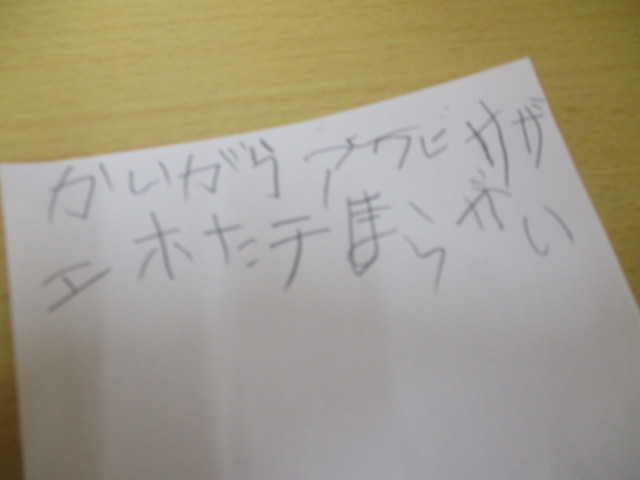 かいがら アワビ サザ
エ ホたテ まらがい